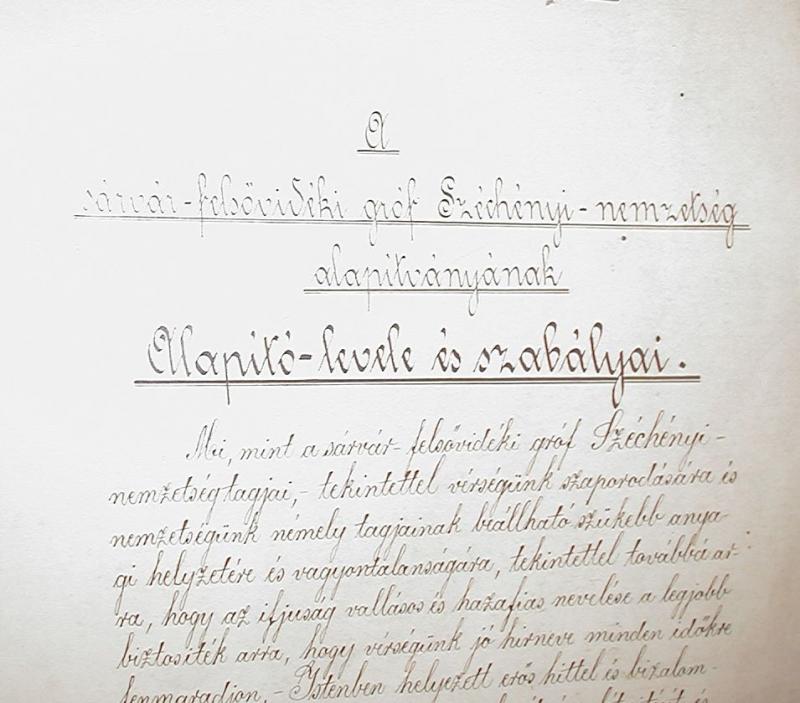 A
sárvár-felsővidéki gróf Széchényi-nemzetség
alapitványának
Alapitó-levele és szabályai.
Mi, mint a sárvár-felsővidéki gróf Széchényi-
nemzetség tagjai,- tekintettel vérségünk szaporodására és
nemzetségünk némely tagjainak beállható szükebb anya-
gi helyzetére és vagyontalanságára, tekintettel továbbá ar-
ra, hogy az ifjuság vallásos és hazafias nevelése a legjobb
biztositék arra, hogy vérségünk jó hirneve minden időkre
fenmaradjon,- Istenben helyezett erős hittel és bizalom-